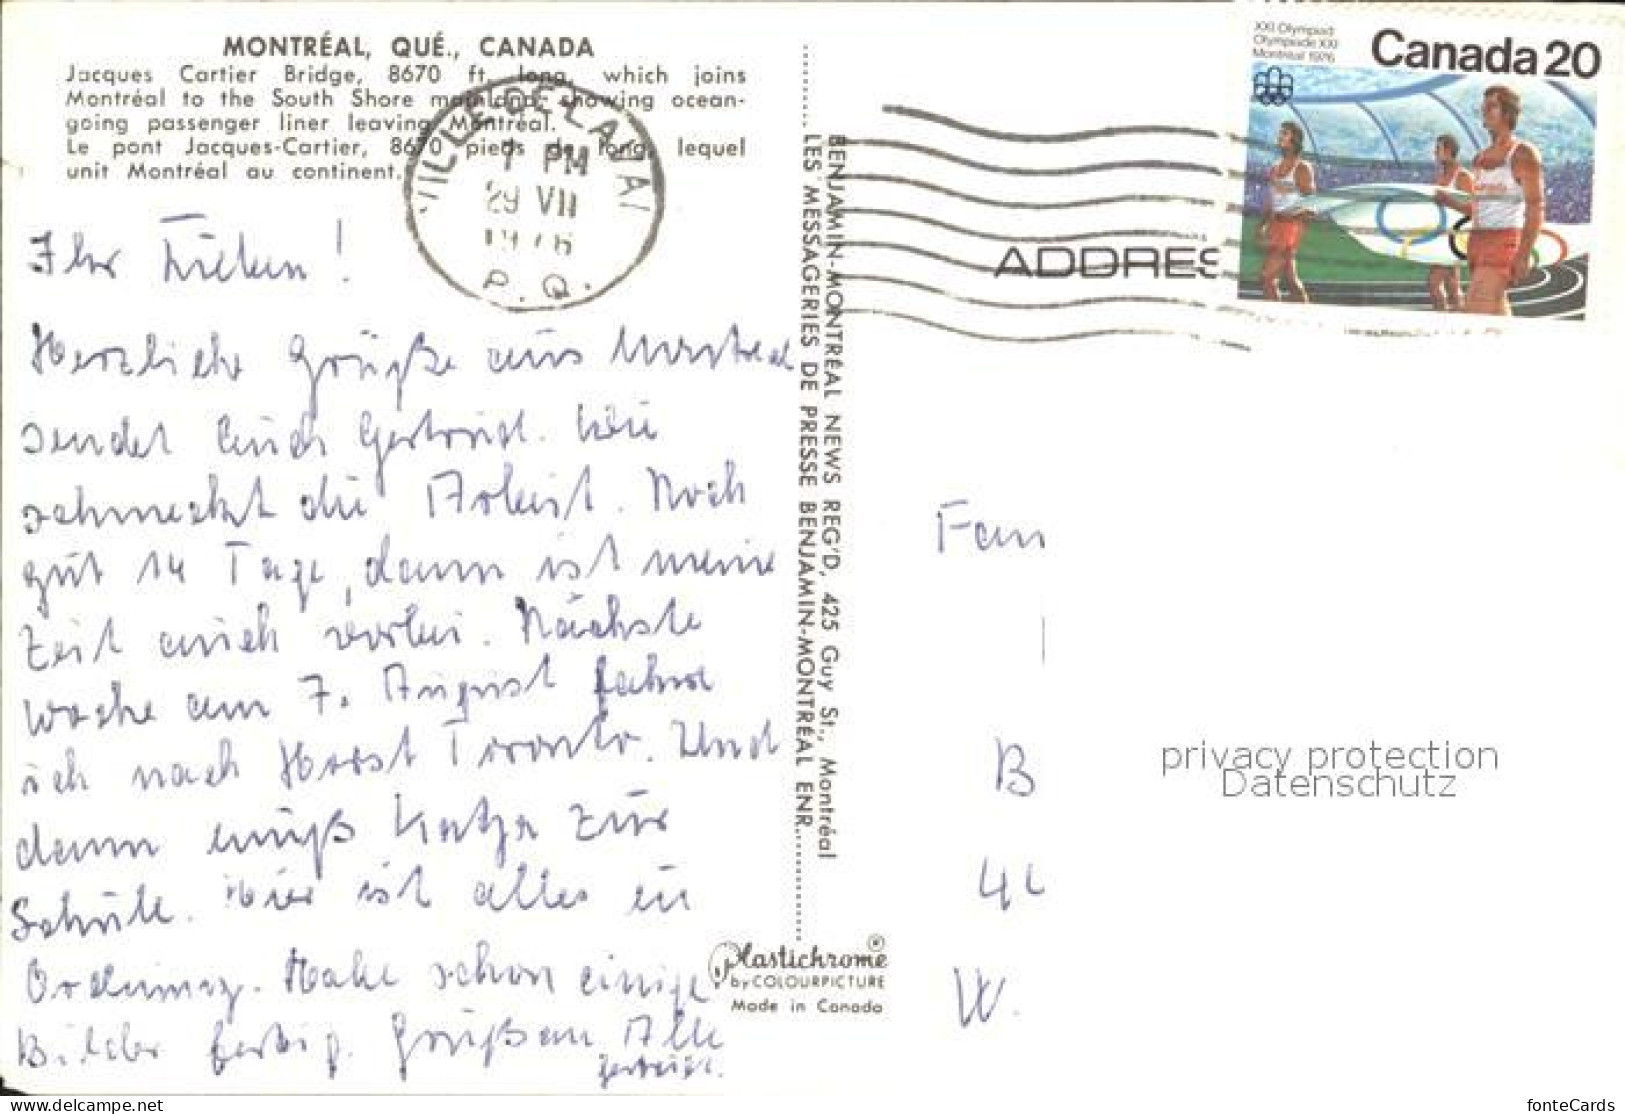 MONTRÉAL, QUÉ., CANADA
Jacques Cartier Bridge, 8670 ft. long, which joins
Montréal to the South Shore mainland, showing ocean-
going passenger liner leaving Montréal.
Le pont Jacques-Cartier, 8670 pieds de long, lequel
unit Montréal au continent.
VILLE DE LAVAL
7 PM
29 VII
1976
P. Q.
XXI Olympiad
Olympiade XXI
Montréal 1976
Canada 20
ADDRES
Ihr Lieben!
Herzliche Grüße aus Montreal
sendet Euch Gertrud. Wie
schmeckt die Arbeit. Noch
gut 14 Tage, dann ist meine
Zeit auch vorbei. Nächste
Woche am 7. August fahre
ich nach Horst Toronto. Und
dann muß Katja zur
Schule. Hier ist alles in
Ordnung. Habe schon einige
Bilder fertig. Grüße an Alle
BENJAMIN-MONTRÉAL NEWS REG'D, 425 Guy St., Montréal
LES MESSAGERIES DE PRESSE BENJAMIN-MONTRÉAL ENR.
Plastichrome ®
by COLOURPICTURE
Made in Canada
Fam
B
4
W.
privacy protection
Datenschutz
https://www.delcampe.net
fonteCards